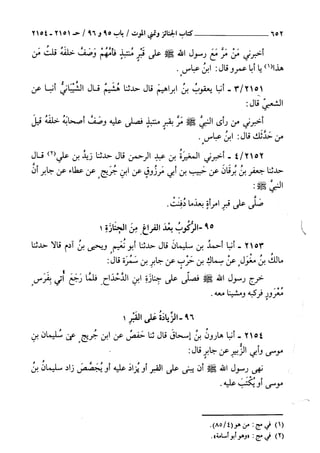 ٦٥٢ ـــــــــ كتاب الجنائز وتمني الموت / باب ٩٥ و ٩٦ / حـ ٢١٥١ - ٢١٥٤
أخبرني مَن مَرَّ مع رسول الله ﷺ على قَبْرٍ مُنتبذٍ فأمَّهُم وَصَفَّ خَلفَهُ قلتُ مَن
هذا(١) يا أبا عمرو قال: ابنُ عباس.
٣/٢١٥١ - أنبا يعقوبُ بنُ ابراهيم قال حدثنا هُشَيم قـال الشَّيبَانيُّ أنبا عن
الشعبيِّ قال:
أخبرني من رأى النبيَّ ﷺ مَرَّ بقبر منتبذٍ فصلى عليه وَصَفَّ أصحابُه خلفَهُ قيلَ
من حدَّثك قال: ابنُ عباسٍ.
٤/٢١٥٢ - أخبرني المغيرةُ بن عبد الرحمن قال حدثنا زيدُ بن علي(٢) قـال
حدثنا جعفر بنُ بُرقَان عن حَبيب بن أبي مَرزوقٍ عن ابن جُرَيج عن عطاء عن جابر أن
النبيَّ ﷺ:
صَلَّى على قبر امرأةٍ بعدَما دُفِنَتْ.
٩٥ - الرُّكوبُ بعْدَ الفَراغِ مِنَ الجَنَازَةِ ١
٢١٥٣ - أنبا أحمدُ بن سليمانَ قال حدثنا أبو نُعَيم ويحيى بنُ آدم قالا حدثنا
مالك بنُ مغْوَل عن سِماكِ بن حَرْبٍ عن جابرِ بن سَمُرة قال:
خرج رسولُ الله ﷺ فصلَّى على جنازة ابن الدَّحْدَاح فلمَّا رَجَعَ أُتِيَ بفَرَسٍ
مُعْرَورٍ فركبه ومشينا معه.
٩٦ - الزِّيَادَةُ عَلى القَبْرِ ١
٢١٥٤ - أنبا هارونُ بنُ إسحاق قال ثنا حَفصٌ عن ابنِ جُريجٍ عن سُليمان بنِ
موسى وأبي الزُّبير عن جابرٍ قال:
نهى رسولُ الله ﷺ أن يبنى على القبر أو يُزادَ عليه أو يُجَصَّصَ زاد سليمانُ بنُ
موسى أو يُكتَبَ عليه.
(١) في مج: من هو (٨٥/٤).
(٢) في مج: «وهو أبو أسامة».